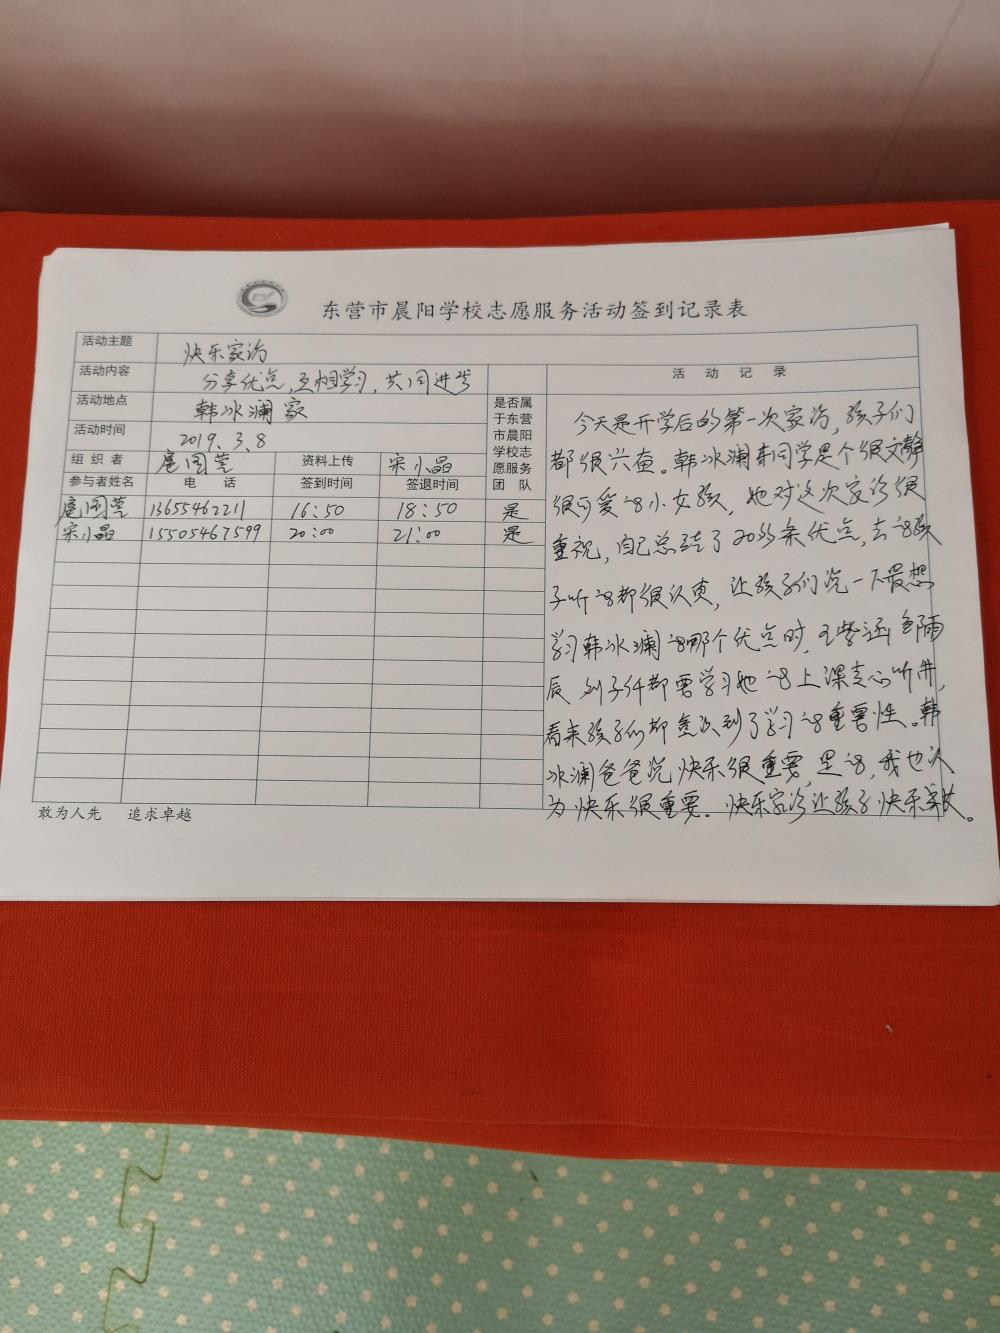 东营市晨阳学校志愿服务活动签到记录表
活动主题 快乐家访
活动内容 分享优点,互相学习,共同进步
活动地点 韩冰澜家
活动时间 2019.3.8
组织者 扈国莹 资料上传 宋小晶
参与者姓名 电话 签到时间 签退时间
是否属
于东营
市晨阳
学校志
愿服务
团队
扈国莹 13655462211 16:50 18:50 是
宋小晶 15505467599 20:00 21:00 是
活动记录
今天是开学后的第一次家访,孩子们
都很兴奋。韩冰澜同学是个很文静
很可爱的小女孩,她对这次家访很
重视,自己总结了20多条优点,去的孩
子听的都很认真,让孩子们说一下最想
学习韩冰澜的哪个优点时,王紫涵
辰 刘子仟都要学习她的上课专心听讲,
看来孩子们都意识到了学习的重要性。韩
冰澜爸爸说快乐很重要,是的,我也认
为快乐很重要。快乐家访让孩子快乐成长。
敢为人先 追求卓越